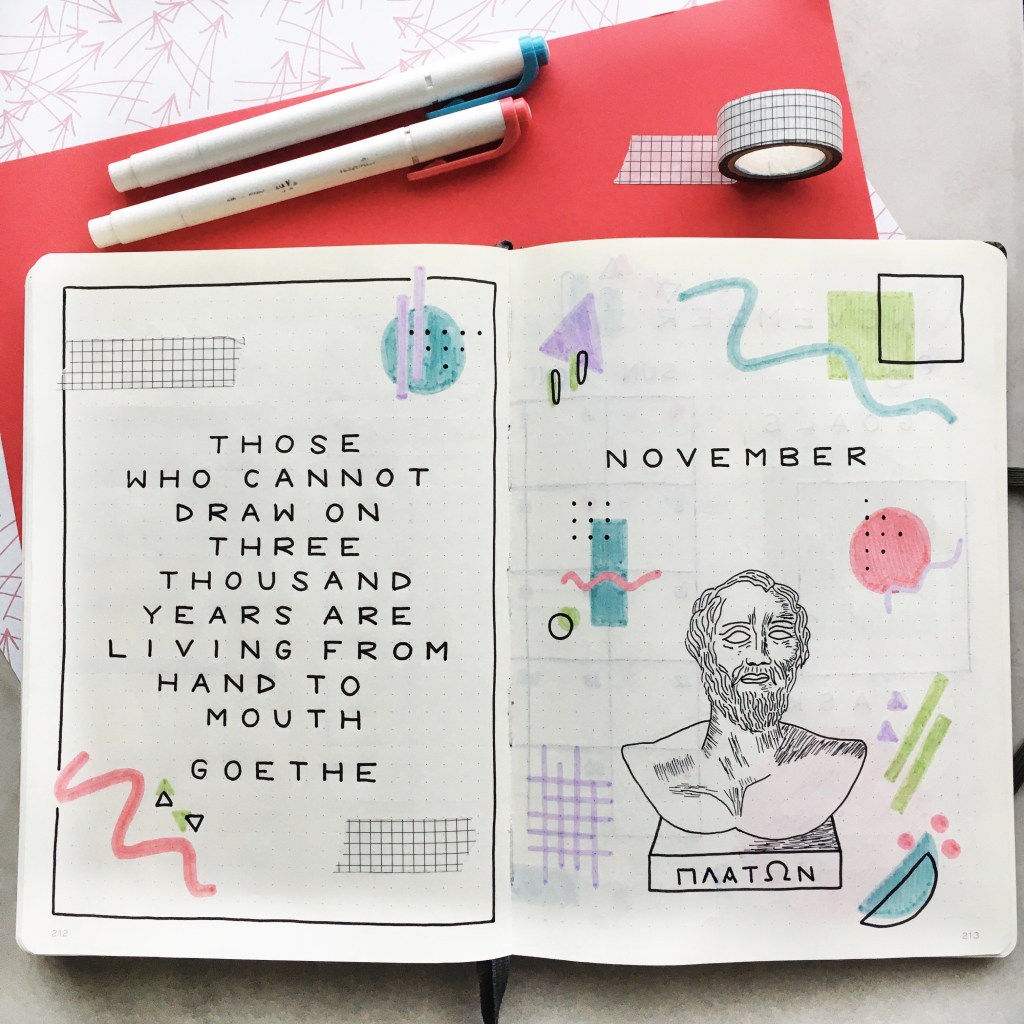 THOSE
WHO CANNOT
DRAW ON
THREE
THOUSAND
YEARS ARE
LIVING FROM
HAND TO
MOUTH
GOETHE
212
NOVEMBER
ΠΛΑΤΩΝ
213